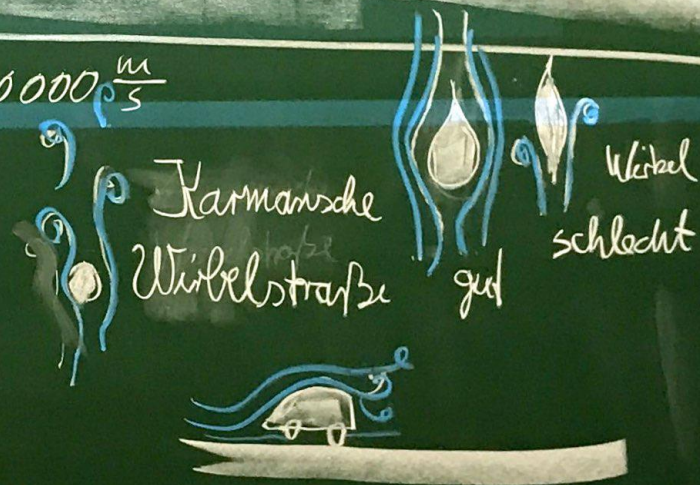 0000 m/s
Karmansche
Wirbelstraße
gut
Wirbel
schlecht